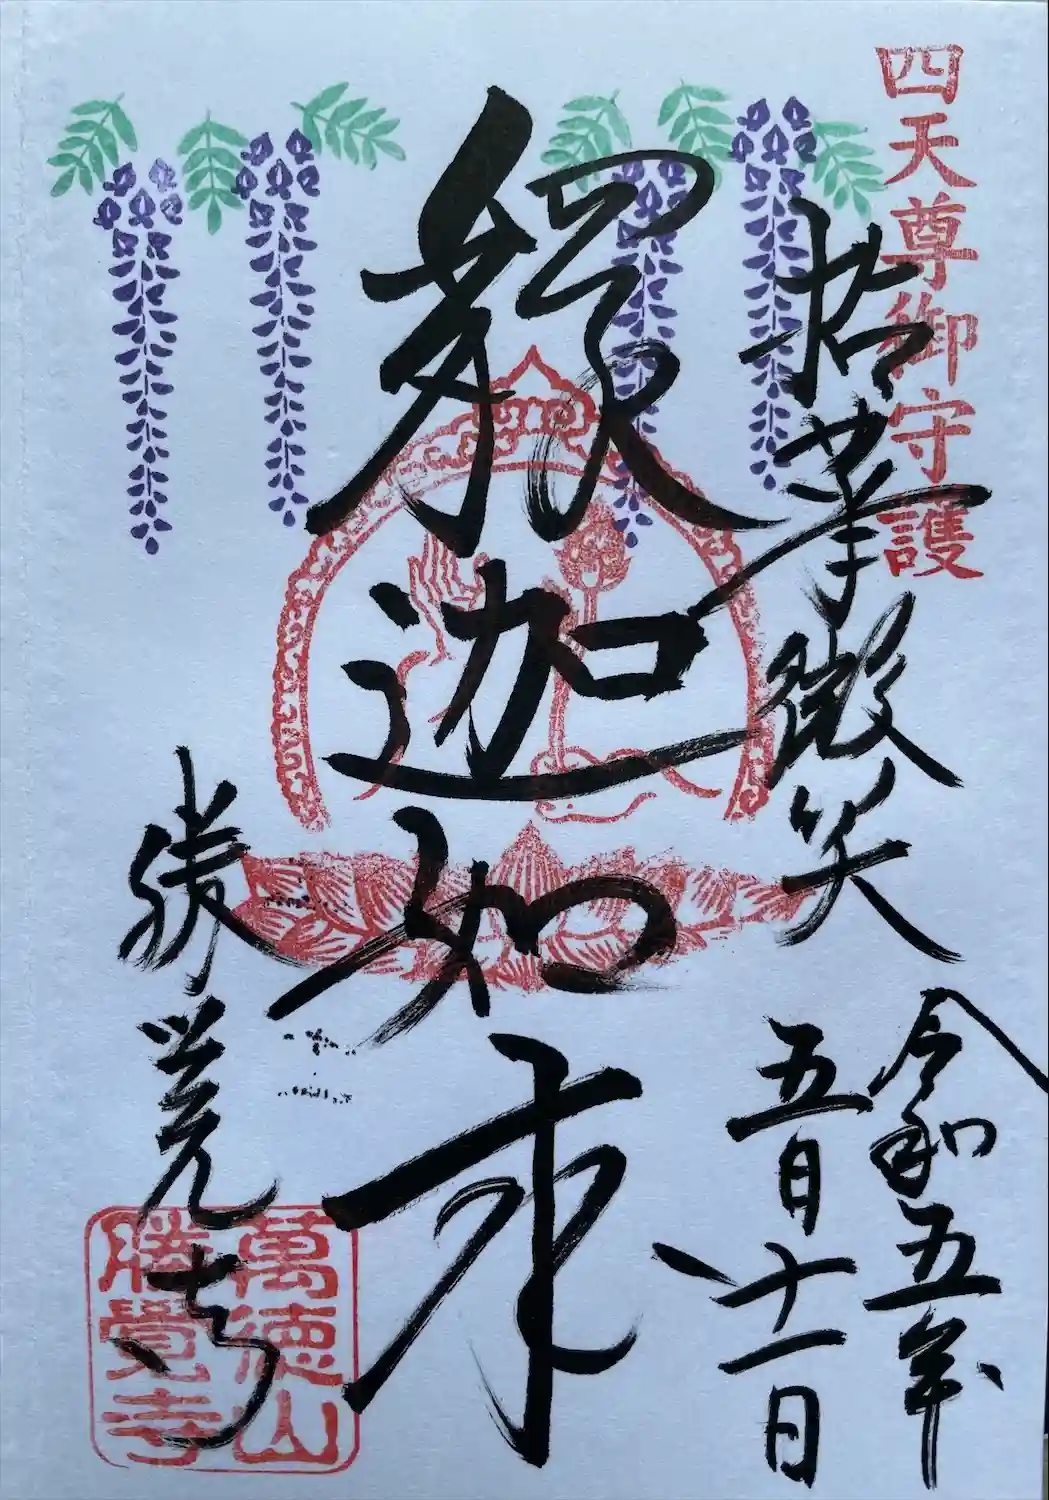 四天尊御守護
拈華微笑
令和五年
五月十一日
釈迦如来
勝覚寺
萬徳山
勝覺寺